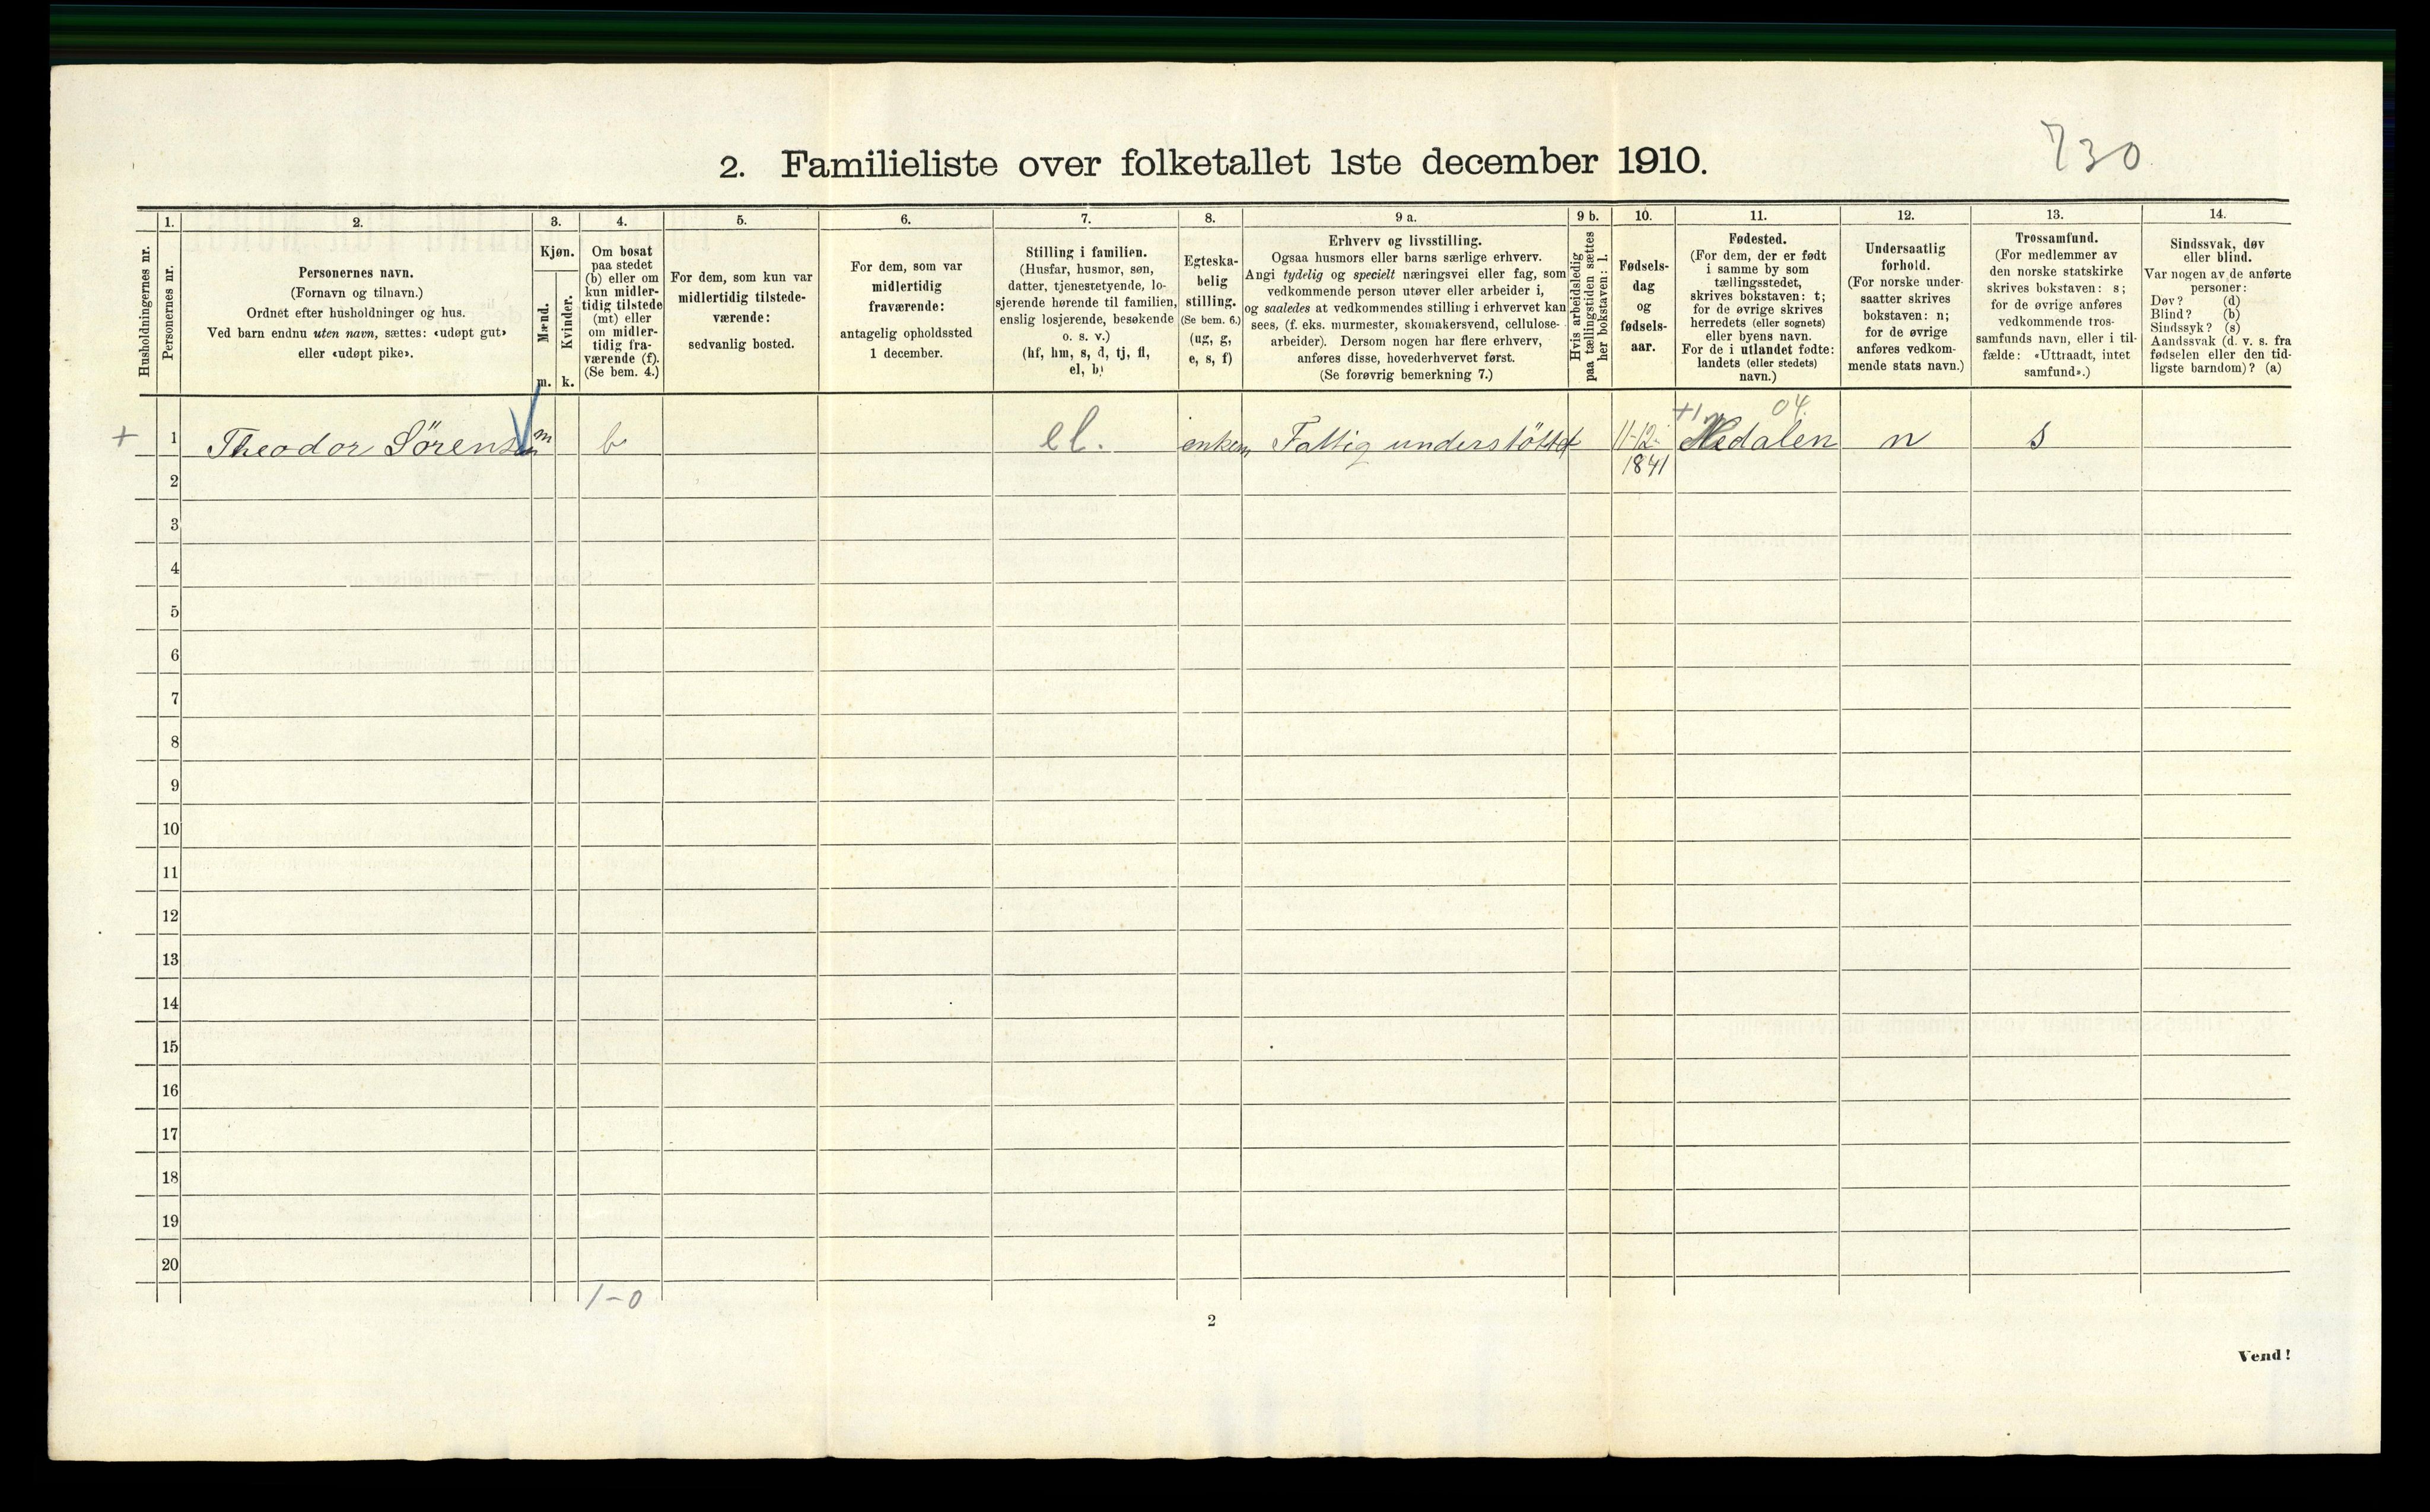 730
2. Familieliste over folketallet 1ste december 1910.
Husholdningernes nr.
1.
Personernes nr.
2.
Personernes navn.
(Fornavn og tilnavn.)
Ordnet efter husholdninger og hus.
Ved barn endnu uten navn, sættes: «udøpt gut»
eller «udøpt pike».
3.
Kjøn.
Mænd.
m.
Kvinder.
k.
4.
Om bosat
paa stedet
(b) eller om
kun midler-
tidig tilstede
(mt) eller
om midler-
tidig fra-
værende (f).
(Se bem. 4.)
5.
For dem, som kun var
midlertidig tilstede-
værende:
sedvanlig bosted.
6.
For dem, som var
midlertidig
fraværende:
antagelig opholdssted
1 december.
7.
Stilling i familien.
(Husfar, husmor, søn,
datter, tjenestetyende, lo-
sjerende hørende til familien,
enslig losjerende, besøkende
o. s. v.)
(hf, hm, s, d, tj, fl,
el, b)
8.
Egteska-
belig
stilling.
(Se bem. 6.)
(ug, g,
e, s, f)
9 a.
Erhverv og livsstilling.
Ogsaa husmors eller barns særlige erhverv.
Angi tydelig og specielt næringsvei eller fag, som
vedkommende person utøver eller arbeider i,
og saaledes at vedkommendes stilling i erhvervet kan
sees, (f. eks. murmester, skomakersvend, cellulose-
arbeider). Dersom nogen har flere erhverv,
anføres disse, hovederhvervet først.
(Se forøvrig bemerkning 7.)
9 b.
Hvis arbeidsledig
paa tællingstiden sættes
her bokstaven: l.
10.
Fødsels-
dag
og
fødsels-
aar.
11.
Fødested.
(For dem, der er født
i samme by som
tællingsstedet,
skrives bokstaven: t;
for de øvrige skrives
herredets (eller sognets)
eller byens navn.
For de i utlandet fødte:
landets (eller stedets)
navn.)
12.
Undersaatlig
forhold.
(For norske under-
saatter skrives
bokstaven: n;
for de øvrige
anføres vedkom-
mende stats navn.)
13.
Trossamfund.
(For medlemmer av
den norske statskirke
skrives bokstaven: s;
for de øvrige anføres
vedkommende tros-
samfunds navn, eller i til-
fælde: «Uttraadt, intet
samfund».)
14.
Sindssvak, døv
eller blind.
Var nogen av de anførte
personer:
Døv? (d)
Blind? (b)
Sindssyk? (s)
Aandssvak (d. v. s. fra
fødselen eller den tid-
ligste barndom)? (a)
04.
+ 1 Theodor Sörensen m b el. enkem Fattig understöttet 11-12- Hedalen n s
1841
2
3
4
5
6
7
8
9
10
11
12
13
14
15
16
17
18
19
20
1-0
2
Vend!